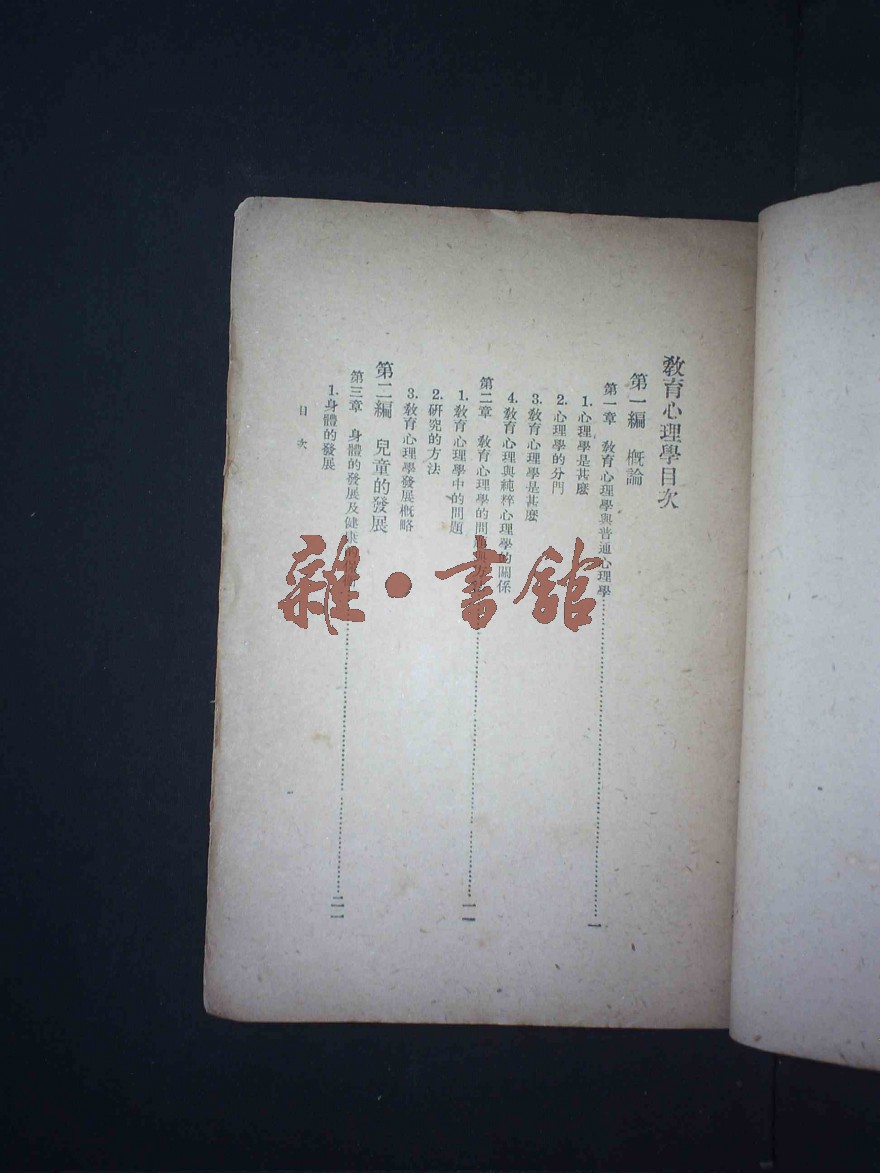 教育心理學目次
第一編 概論
第一章 教育心理學與普通心理學……一
1. 心理學是甚麽
2. 心理學的分門
3. 教育心理學是甚麽
4. 教育心理與純粹心理學的關係
第二章 教育心理學的問……一一
1. 教育心理學中的問題
2. 研究的方法
3. 教育心理學發展概略
第二編 兒童的發展
第三章 身體的發展及健康……二一
1. 身體的發展
目次
雜·書舘